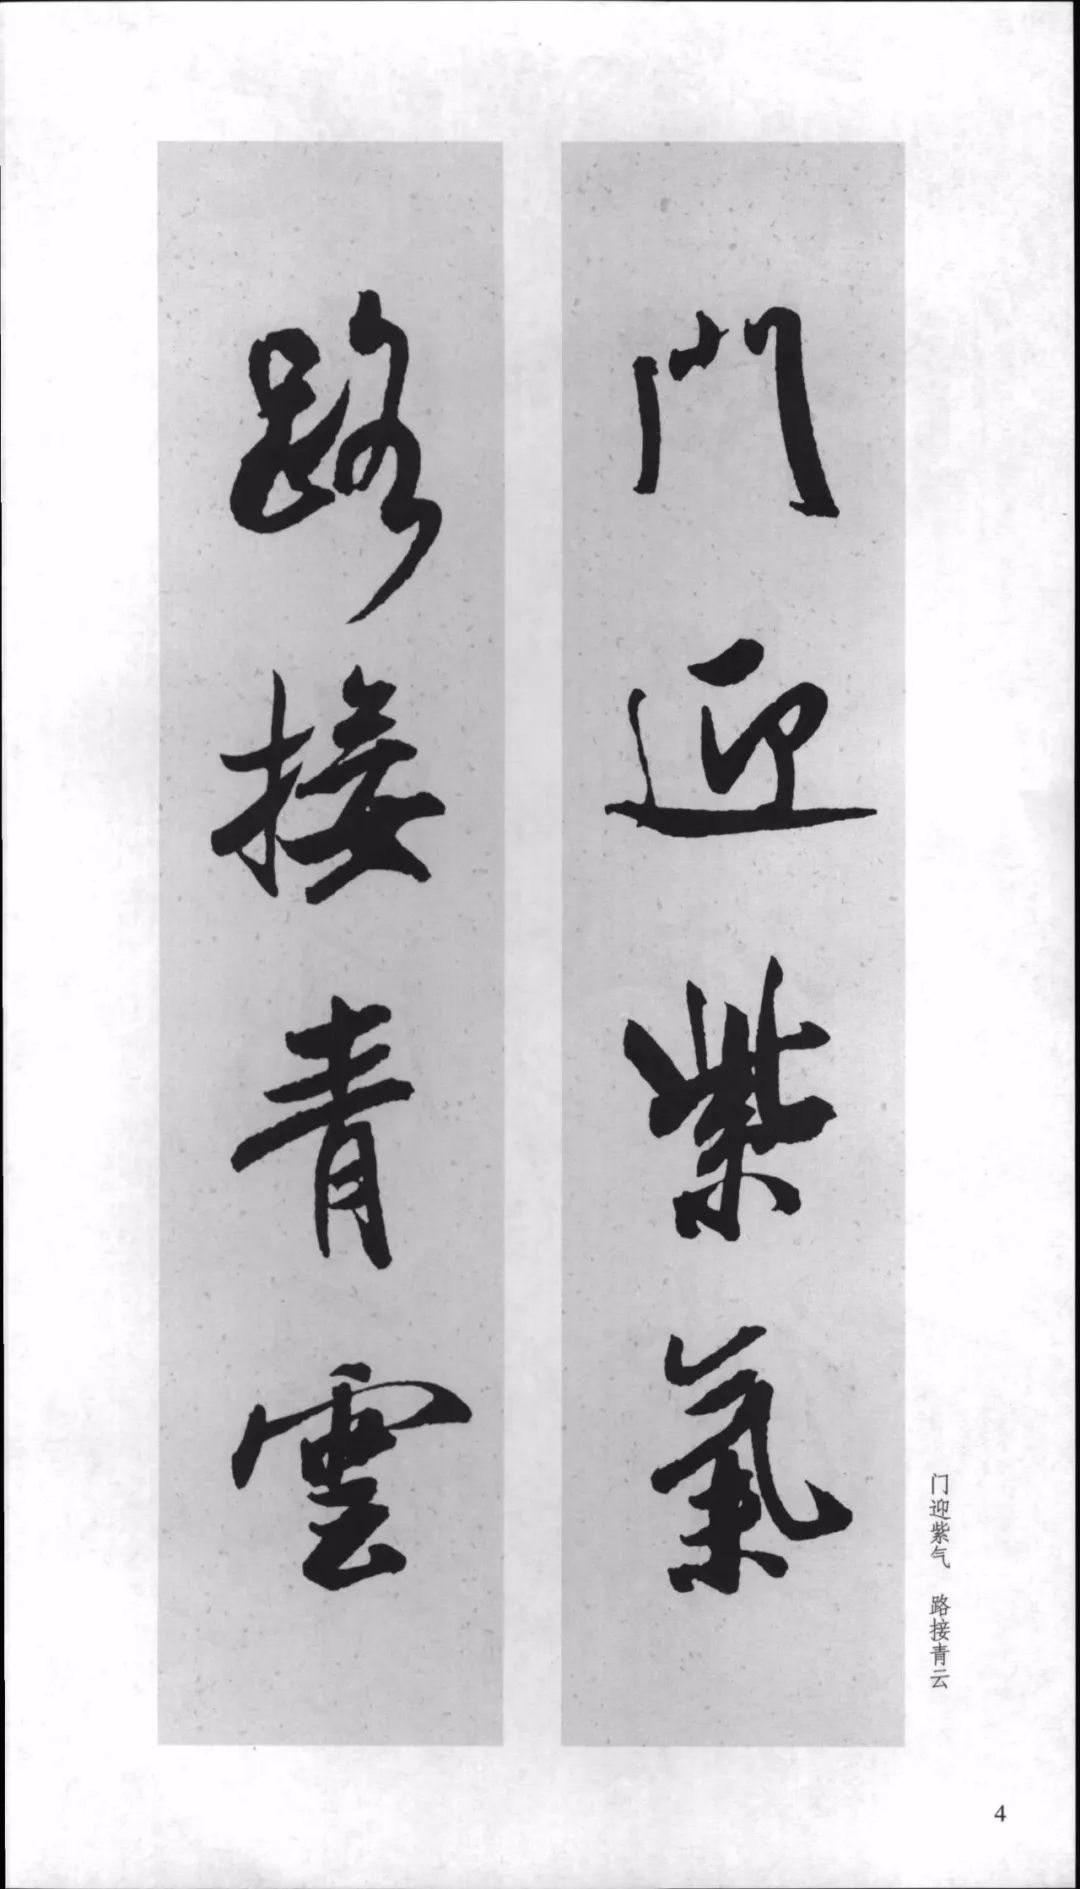 門迎紫氣
路接青雲
门迎紫气 路接青云
4